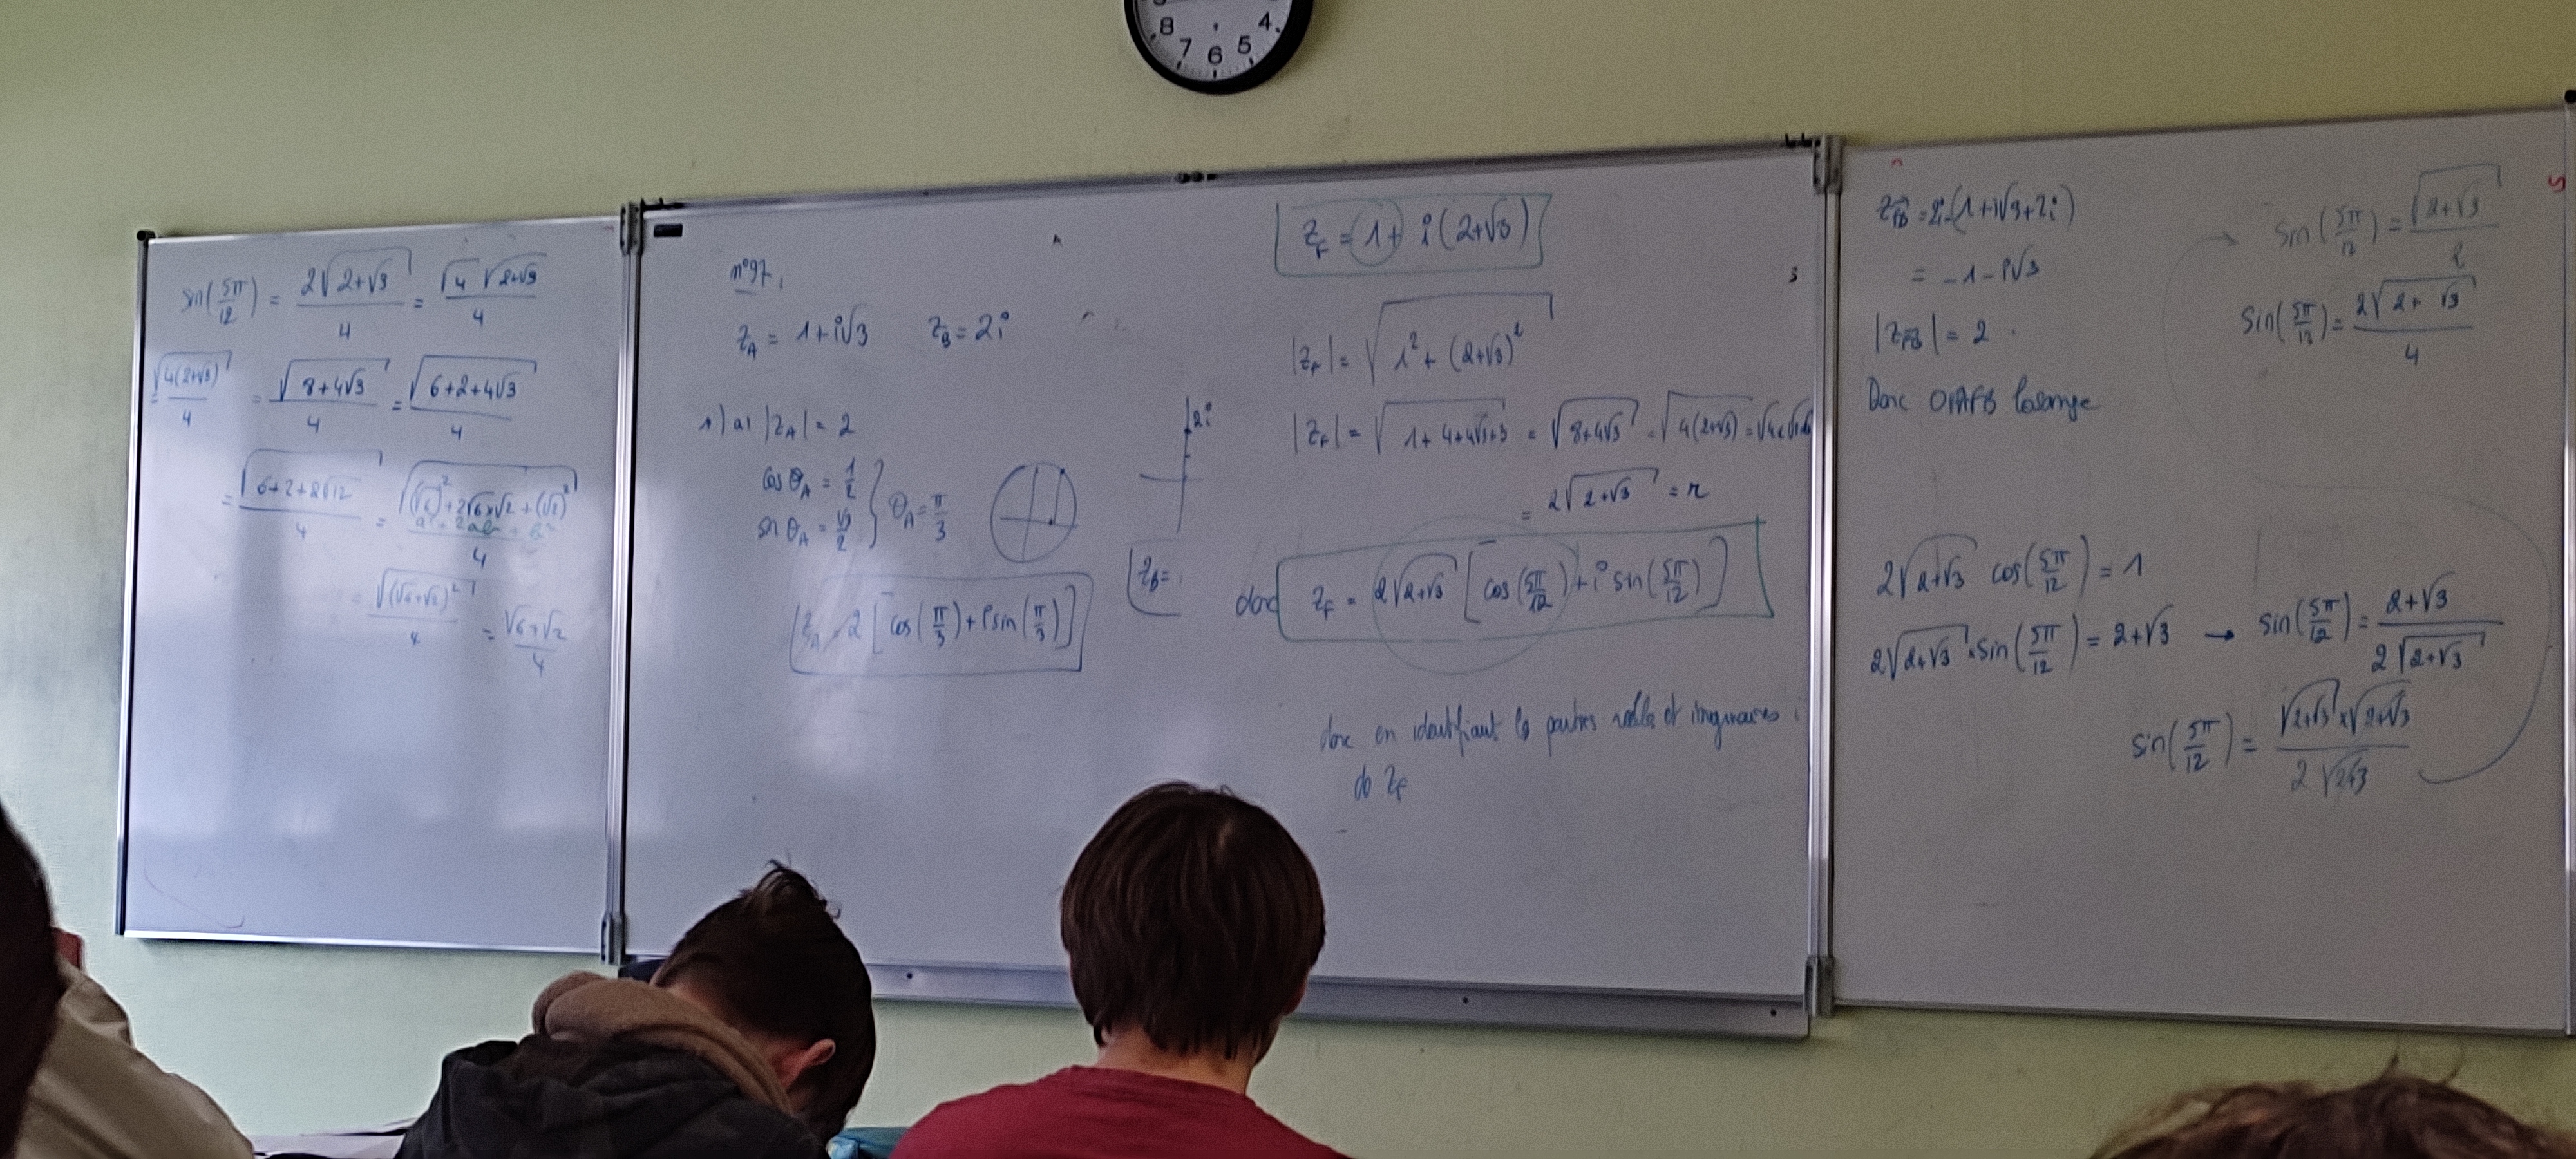 8 7 6 5 4
sin(5π/12) = 2√(2+√3)/4 = √4 √(2+√3)/4
= √(4(2+√3))/4 = √(8+4√3)/4 = √(6+2+4√3)/4
= √(6+2+2√12)/4 = √((√6)²+2√6×√2+(√2)²)/4
a² + 2ab + b²
= √((√6+√2)²)/4 = √6+√2/4
n°97.
z_A = 1+i√3 z_B = 2i
1) a) |z_A| = 2
cos θ_A = 1/2
sin θ_A = √3/2
} θ_A = π/3
z_A = 2[cos(π/3)+i sin(π/3)]
2i
z_B =
z_F = 1+ i(2+√3)
|z_F| = √(1² + (2+√3)²)
|z_F| = √(1+4+4√3+3) = √(8+4√3) = √(4(2+√3)) =
= 2√(2+√3) = r
donc z_F = 2√(2+√3) [cos(5π/12)+i sin(5π/12)]
donc en identifiant les parties réelles et imaginaires
de z_F
z_FB = 2i-(1+i√3+2i)
= -1-i√3
|z_FB| = 2
Donc OAFB losange
2√(2+√3) cos(5π/12) = 1
2√(2+√3) × sin(5π/12) = 2+√3 → sin(5π/12) = 2+√3/2√(2+√3)
sin(5π/12) = √(2+√3)×√(2+√3)/2√(2+√3)
→ sin(5π/12) = √(2+√3)/2
sin(5π/12) = 2√(2+√3)/4